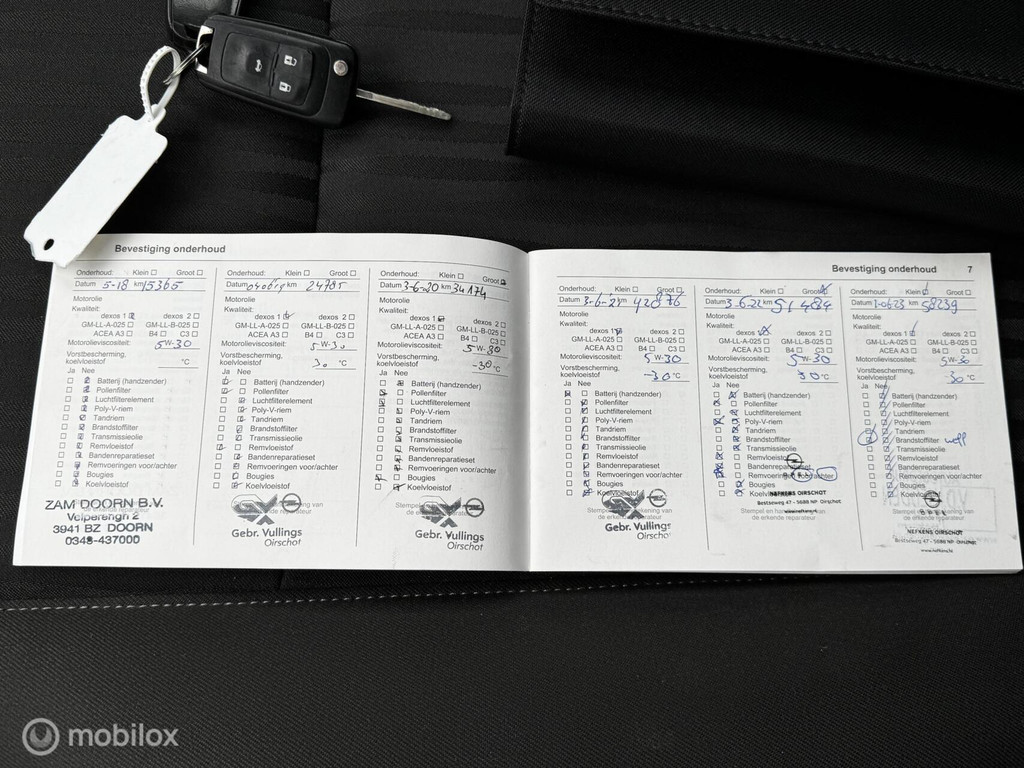 Bevestiging onderhoud
Onderhoud: Klein ☐ Groot ☐
Datum 5-18 km 15365
Motorolie
Kwaliteit:
dexos 1 dexos 2 ☐
GM-LL-A-025 ☐ GM-LL-B-025 ☐
ACEA A3 ☐ B4 ☐ C3 ☐
Motorolieviscositeit: 5W-30
Vorstbescherming,
koelvloeistof °C
Ja Nee
Batterij (handzender)
Pollenfilter
Luchtfilterelement
Poly-V-riem
Tandriem
Brandstoffilter
Transmissieolie
Remvloeistof
Bandenreparatieset
Remvoeringen voor/achter
Bougies
Koelvloeistof
ZAM DOORN B.V.
Velperengh 2
3941 BZ DOORN
0343-437000
Onderhoud: Klein ☐ Groot ☐
Datum km 24785
Motorolie
Kwaliteit:
dexos 1 dexos 2 ☐
GM-LL-A-025 ☐ GM-LL-B-025 ☐
ACEA A3 ☐ B4 ☐ C3 ☐
Motorolieviscositeit: 5W-30
Vorstbescherming,
koelvloeistof 30 °C
Ja Nee
Batterij (handzender)
Pollenfilter
Luchtfilterelement
Poly-V-riem
Tandriem
Brandstoffilter
Transmissieolie
Remvloeistof
Bandenreparatieset
Remvoeringen voor/achter
Bougies
Koelvloeistof
Gebr. Vullings
Oirschot
Onderhoud: Klein ☐ Groot
Datum 3-6-20 km 34174
Motorolie
Kwaliteit:
dexos 1 dexos 2 ☐
GM-LL-A-025 ☐ GM-LL-B-025 ☐
ACEA A3 ☐ B4 ☐ C3 ☐
Motorolieviscositeit: 5W-30
Vorstbescherming,
koelvloeistof -30 °C
Ja Nee
Batterij (handzender)
Pollenfilter
Luchtfilterelement
Poly-V-riem
Tandriem
Brandstoffilter
Transmissieolie
Remvloeistof
Bandenreparatieset
Remvoeringen voor/achter
Bougies
Koelvloeistof
Gebr. Vullings
Oirschot
Bevestiging onderhoud 7
Onderhoud: Klein ☐ Groot ☐
Datum 3-6-21 km 42876
Motorolie
Kwaliteit:
dexos 1 dexos 2 ☐
GM-LL-A-025 ☐ GM-LL-B-025 ☐
ACEA A3 ☐ B4 ☐ C3 ☐
Motorolieviscositeit: 5W-30
Vorstbescherming,
koelvloeistof -30 °C
Ja Nee
Batterij (handzender)
Pollenfilter
Luchtfilterelement
Poly-V-riem
Tandriem
Brandstoffilter
Transmissieolie
Remvloeistof
Bandenreparatieset
Remvoeringen voor/achter
Bougies
Koelvloeistof
Gebr. Vullings
Oirschot
Onderhoud: Klein ☐ Groot
Datum 3-6-22 km 51484
Motorolie
Kwaliteit:
dexos 1 dexos 2 ☐
GM-LL-A-025 ☐ GM-LL-B-025 ☐
ACEA A3 ☐ B4 ☐ C3 ☐
Motorolieviscositeit: 5W-30
Vorstbescherming,
koelvloeistof 30 °C
Ja Nee
Batterij (handzender)
Pollenfilter
Luchtfilterelement
Poly-V-riem
Tandriem
Brandstoffilter
Transmissieolie
Remvloeistof
Bandenreparatieset
Remvoeringen
Bougies
NEFKENS OIRSCHOT
Bestseweg 47 - 5688 NP Oirschot
Onderhoud: Klein Groot ☐
Datum 1-0623 km 58239
Motorolie
Kwaliteit:
dexos 1 dexos 2 ☐
GM-LL-A-025 ☐ GM-LL-B-025 ☐
ACEA A3 ☐ B4 ☐ C3 ☐
Motorolieviscositeit: 5W-30
Vorstbescherming,
koelvloeistof -30 °C
Ja Nee
Batterij (handzender)
Pollenfilter
Luchtfilterelement
Poly-V-riem
Tandriem
Brandstoffilter
Transmissieolie
Remvloeistof
Bandenreparatieset
Remvoeringen
Bougies
OPEL
NEFKENS OIRSCHOT
Bestseweg 47 - 5688 NP Oirschot
www.nefkens.nl
mobilox